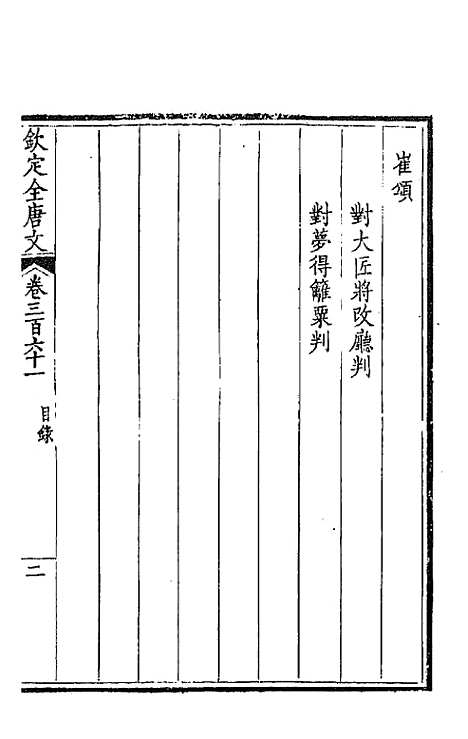 崔頌
對大匠將改廳判
對夢得籬粟判
欽定全唐文
卷三百六十一
目錄
二